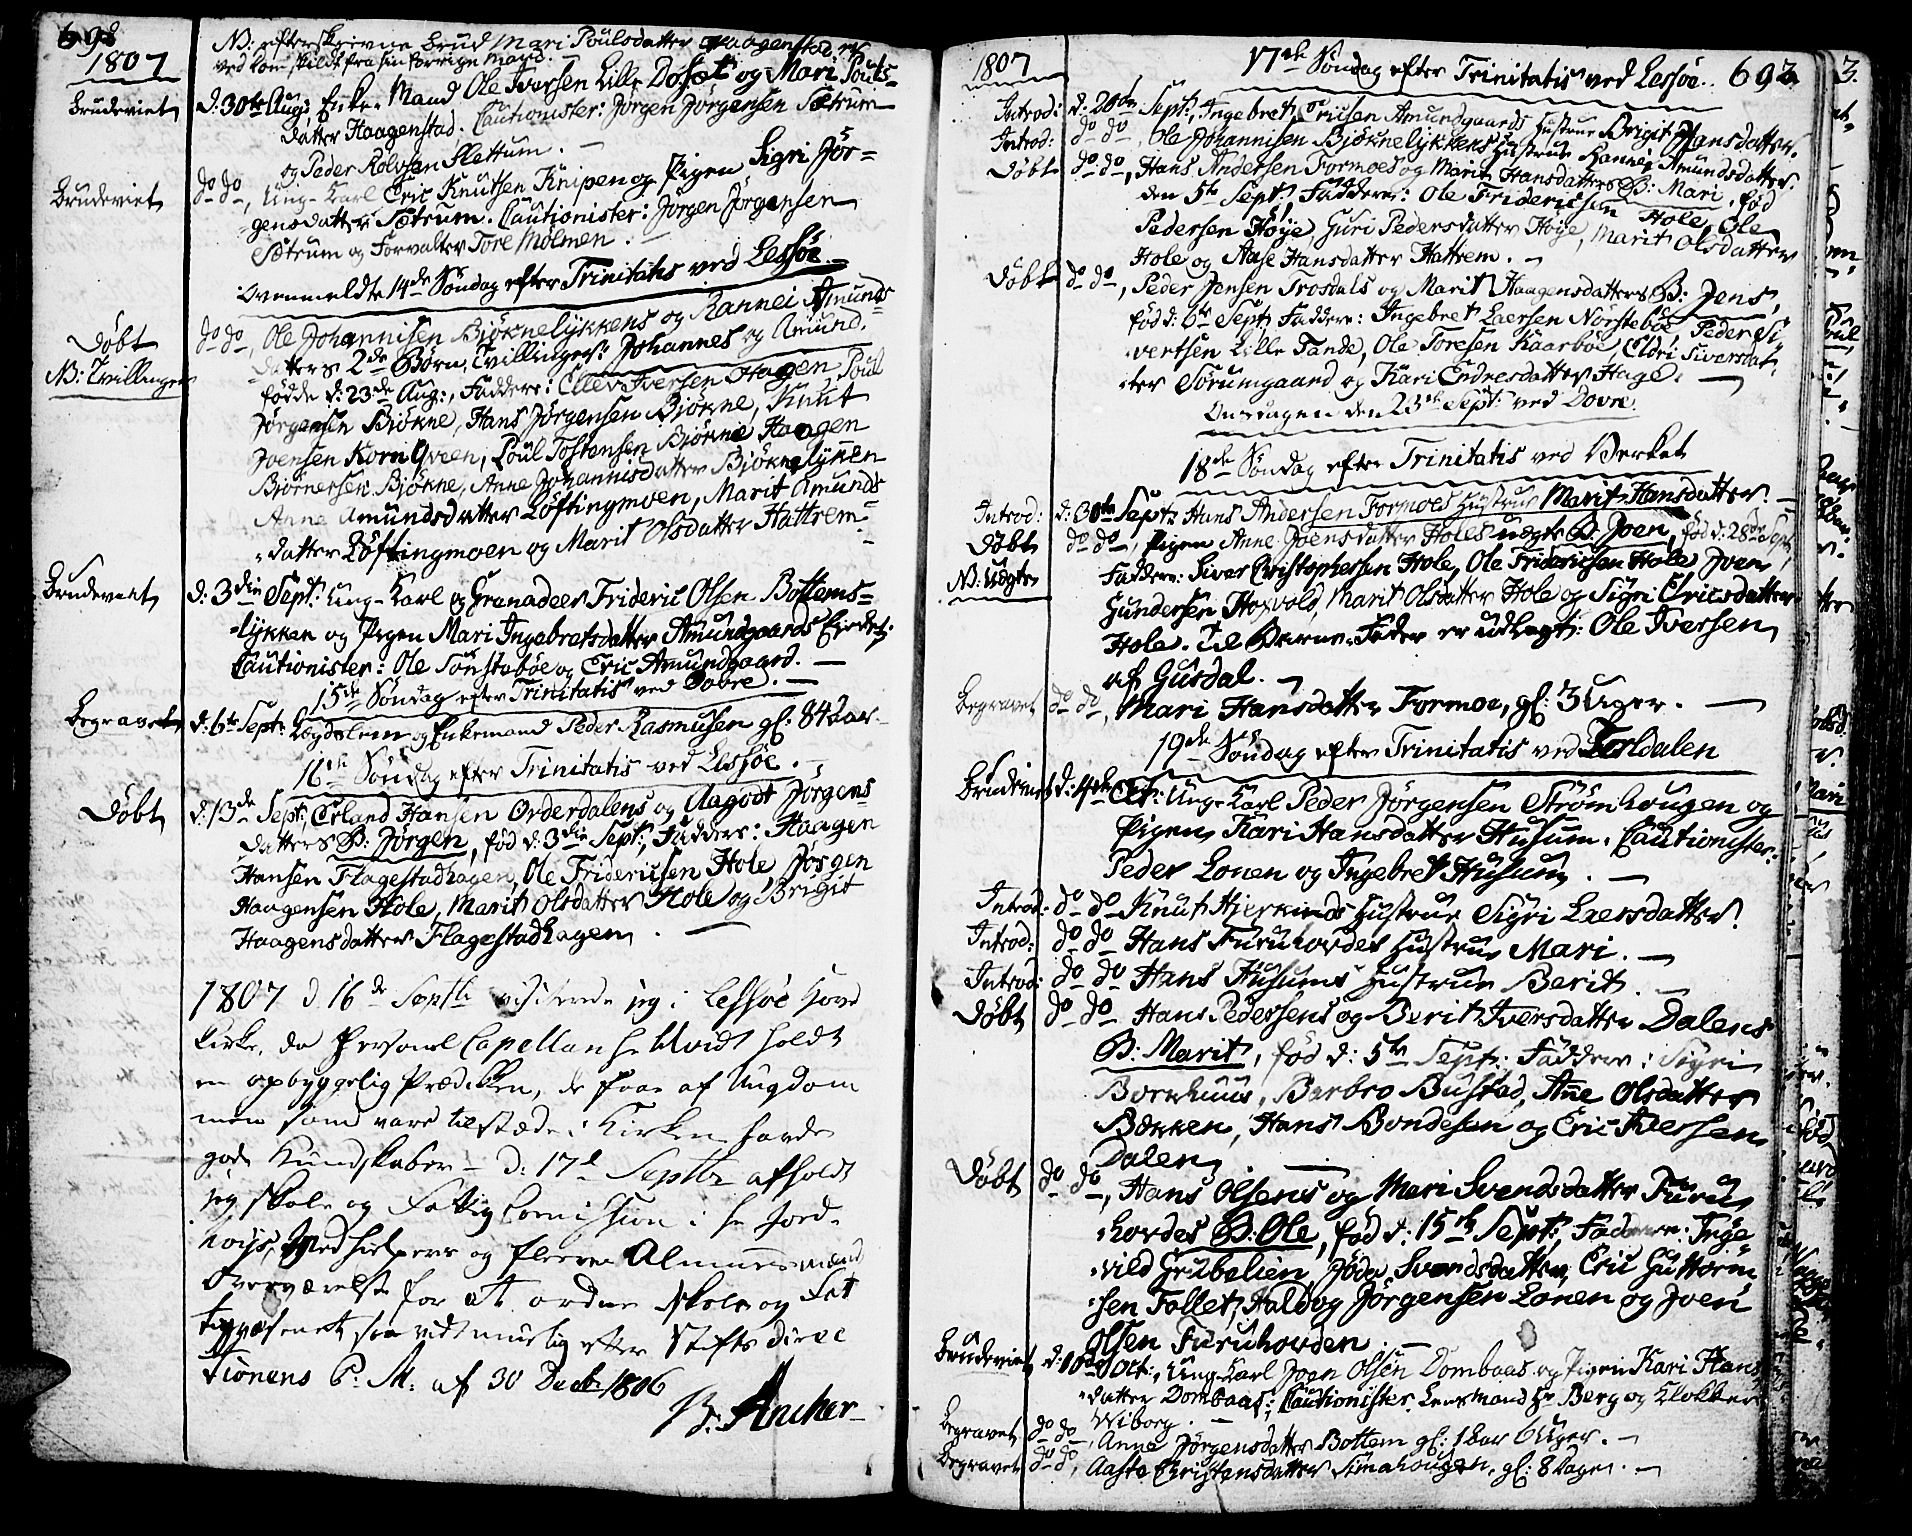 692
1807
NB: efterskrevne Brud Mari Poulsdatter Haagenstad er
ved Dom skildt fra sin forrige Mand.
Brudeviet d: 30te Aug: Enke-Mand Ole Iversen Lille Dosæt og Mari Pouls-
datter Haagenstad. Cautionister: Jørgen Jørgensen Sætrum
og Peder Rolvsen Slettum. —
Brudeviet do do, Ung-Karl Eric Knutsen Knipen og Pigen Sigri Jør-
gensdatter Sætrum. Cautionister: Jørgen Jørgensen
Sætrum og Forvalter Tore Mølmen. —
Ovenmeldte 14de Søndag efter Trinitatis ved Lessøe. —
Døbt do do, Ole Johannisen Bjøknelykkens og Rannei Amunds-
NB: Tvillinger datters 2de Børn, Tvillinger: Johannes og Amund.
fødde d: 23de Aug:, Faddere: Ellev Iversen Hagen, Poul
Jørgensen Bjøkne, Hans Jørgensen Bjøkne, Knut
Joensen Korn Qveen, Poul Tostensen Bjøkne Haagen
Bjørnersen Bjøkne, Anne Johannisdatter Bjøknelyken
Anne Amundsdatter Løftingmoen, Marit Amunds-
datter Løftingmoen og Marit Olsdatter Hattrem. —
Brudeviet d: 3die Sept: Ung-Karl og Granadeer Frideric Olsen Bottems-
lykken og Pigen Mari Ingebretsdatter Amundgaards Eiedet.
Cautionister: Ole Tønstebøe og Eric Amundgaard. —
15de Søndag efter Trinitatis ved Dovre. —
Begravet d: 6te Sept: Lægdslem og Enkemand Peder Rasmusen gl: 84 Aar.
16de Søndag efter Trinitatis ved Lessøe. —
Døbt d: 13de Sept: Erland Hansen Orderdalens og Aagodt Jørgens-
datters B: Jørgen, fød d: 3die Sept:, Faddere: Haagen
Hansen Flagestadhagen, Ole Fridericsen Hole Jørgen
Haagensen Hole, Marit Olsdatter Hole og Brigit
Haagensdatter Flagestadhagen. —
1807 d. 16de Septbr visiterede jeg i Lessøe Hoved
Kirke, da Personel Capellan Hr Hvidt holdt
en opbyggelig Prædiken, de faae af Ungdom
men som vare tilstæde i Kirken havde
gode Kundskaber — D: 17de Septbr afholdt
jeg Skole og Fattig Comission i Hr Jord-
hoys, Medhielpere og fleere Almuesmænd
Overværelse for at ordne Skole og Fat
tigvæsenet saa vidt muelig efter Stifts Direc
tionens P. M: af 30 Decbr 1806
B. Ancher
1807 17de Søndag efter Trinitatis ved Lessøe. 693.
Introd: d: 20de Sept: Ingebret Ericsen Amundgaards Hustrue Brigit Hansdatter.
Introd: do do, Ole Johannisen Bjøknelykkens Hustrue Rannei Amundsdatter.
Døbt do do, Hans Andersen Formoes og Marit Hansdatters B: Mari, fød
den 5te Sept: Faddere: Ole Fridericsen Hole, Ole
Pedersen Høye, Guri Pedersdatter Høye, Marit Olsdatter
Hole og Aase Hansdatter Hattrem. —
Døbt do do, Peder Jensen Trosdals og Marit Haagensdatters B: Jens,
fød d: 6te Sept: Faddere: Ingebret Laersen Nørstebøe Peder Si-
vertsen Lille Tande, Ole Toresen Kaarbøe, Eldri Siversdat-
ter Sørumgaard og Kari Endresdatter Hage. —
Onsdagen den 23de Sept: ved Dovre.
18de Søndag efter Trinitatis ved Verket
Introd: d: 30te Sept: Hans Andersen Formoes Hustrue Marit Hansdatter. —
Døbt do do, Pigen Anne Joensdatter Holes uægte B. Joen, fød d: 28de Sept:
NB: Uægte Faddere: Siver Christophersen Hole, Ole Fridericsen Hole Joen
Gundersen Hoxvold, Marit Olsdatter Hole og Sigri Ericsdatter
Hole. Til Barne-Fader er udlagt: Ole Iversen
af Gusdal. —
Begravet do do, Mari Hansdatter Formoe, gl: 3 Uger. —
19de Søndag efter Trinitatis ved Foldalen
Brudeviet d: 4de Oct: Ung-Karl Peder Jørgensen Strømhougen og
Pigen Kari Hansdatter Husum. Cautionister:
Peder Lonen og Ingebret Husum. —
Introd: do do Knut Hjerkinds Hustrue Sigri Laersdatter.
Introd: do do Hans Furuhovdes Hustrue Mari. —
Introd: do do Hans Husums Hustrue Berit. —
Døbt do do Hans Pedersens og Berit Iversdatter Dalens
B: Marit, fød d: 5te Sept: Faddere: Sigri
Borkhuus, Barbro Bustad, Anne Olsdatter
Bækken, Hans Bondesen og Eric Iversen
Dalen —
Døbt do do, Hans Olsens og Mari Svendsdatter Furu-
hovdes B: Ole, fød d: 15de Sept: Faddere: Inge-
vild Grubelien, Jøda Svendsdatter, Eric Guttorm-
sen Follet, Haldog Jørgensen Lonen og Joen
Olsen Furuhovden. —
Brudeviet d: 10de Oct:, Ung-Karl Joen Olsen Dombaas og Pigen Kari Hans-
datter Dombaas: Cautionister. Lensmand Hr Berg og Klokker
Wiborg. —
Begravet do do, Anne Jørgensdatter Bottem gl: 1 Aar 6 Uger. —
Begravet do do, Aaste Christensdatter Simahougen, gl: 8 Dage. —